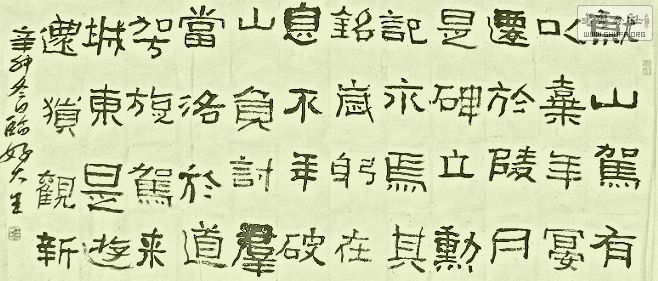 山鴐有
棄年宴
遷於陵月
是碑立勳
記亦焉其
銘歲躬在
息不年破
山負討羣
當洛於道
駕旋駕来
城東是遊
遷猶觀新
辛卯冬月臨好大王
WWW.SHUFA.ORG